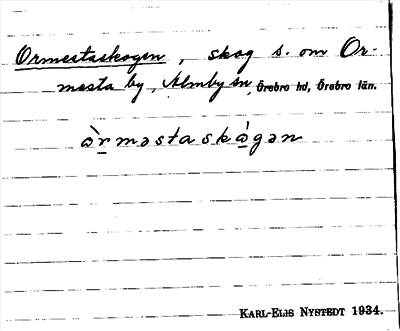 Ormestaskogen, skog s. om Or-
mesta by, Almby sn, Örebro hd, Örebro län.
ὰrməstaskágən
KARL-ELIS NYSTEDT 1934.